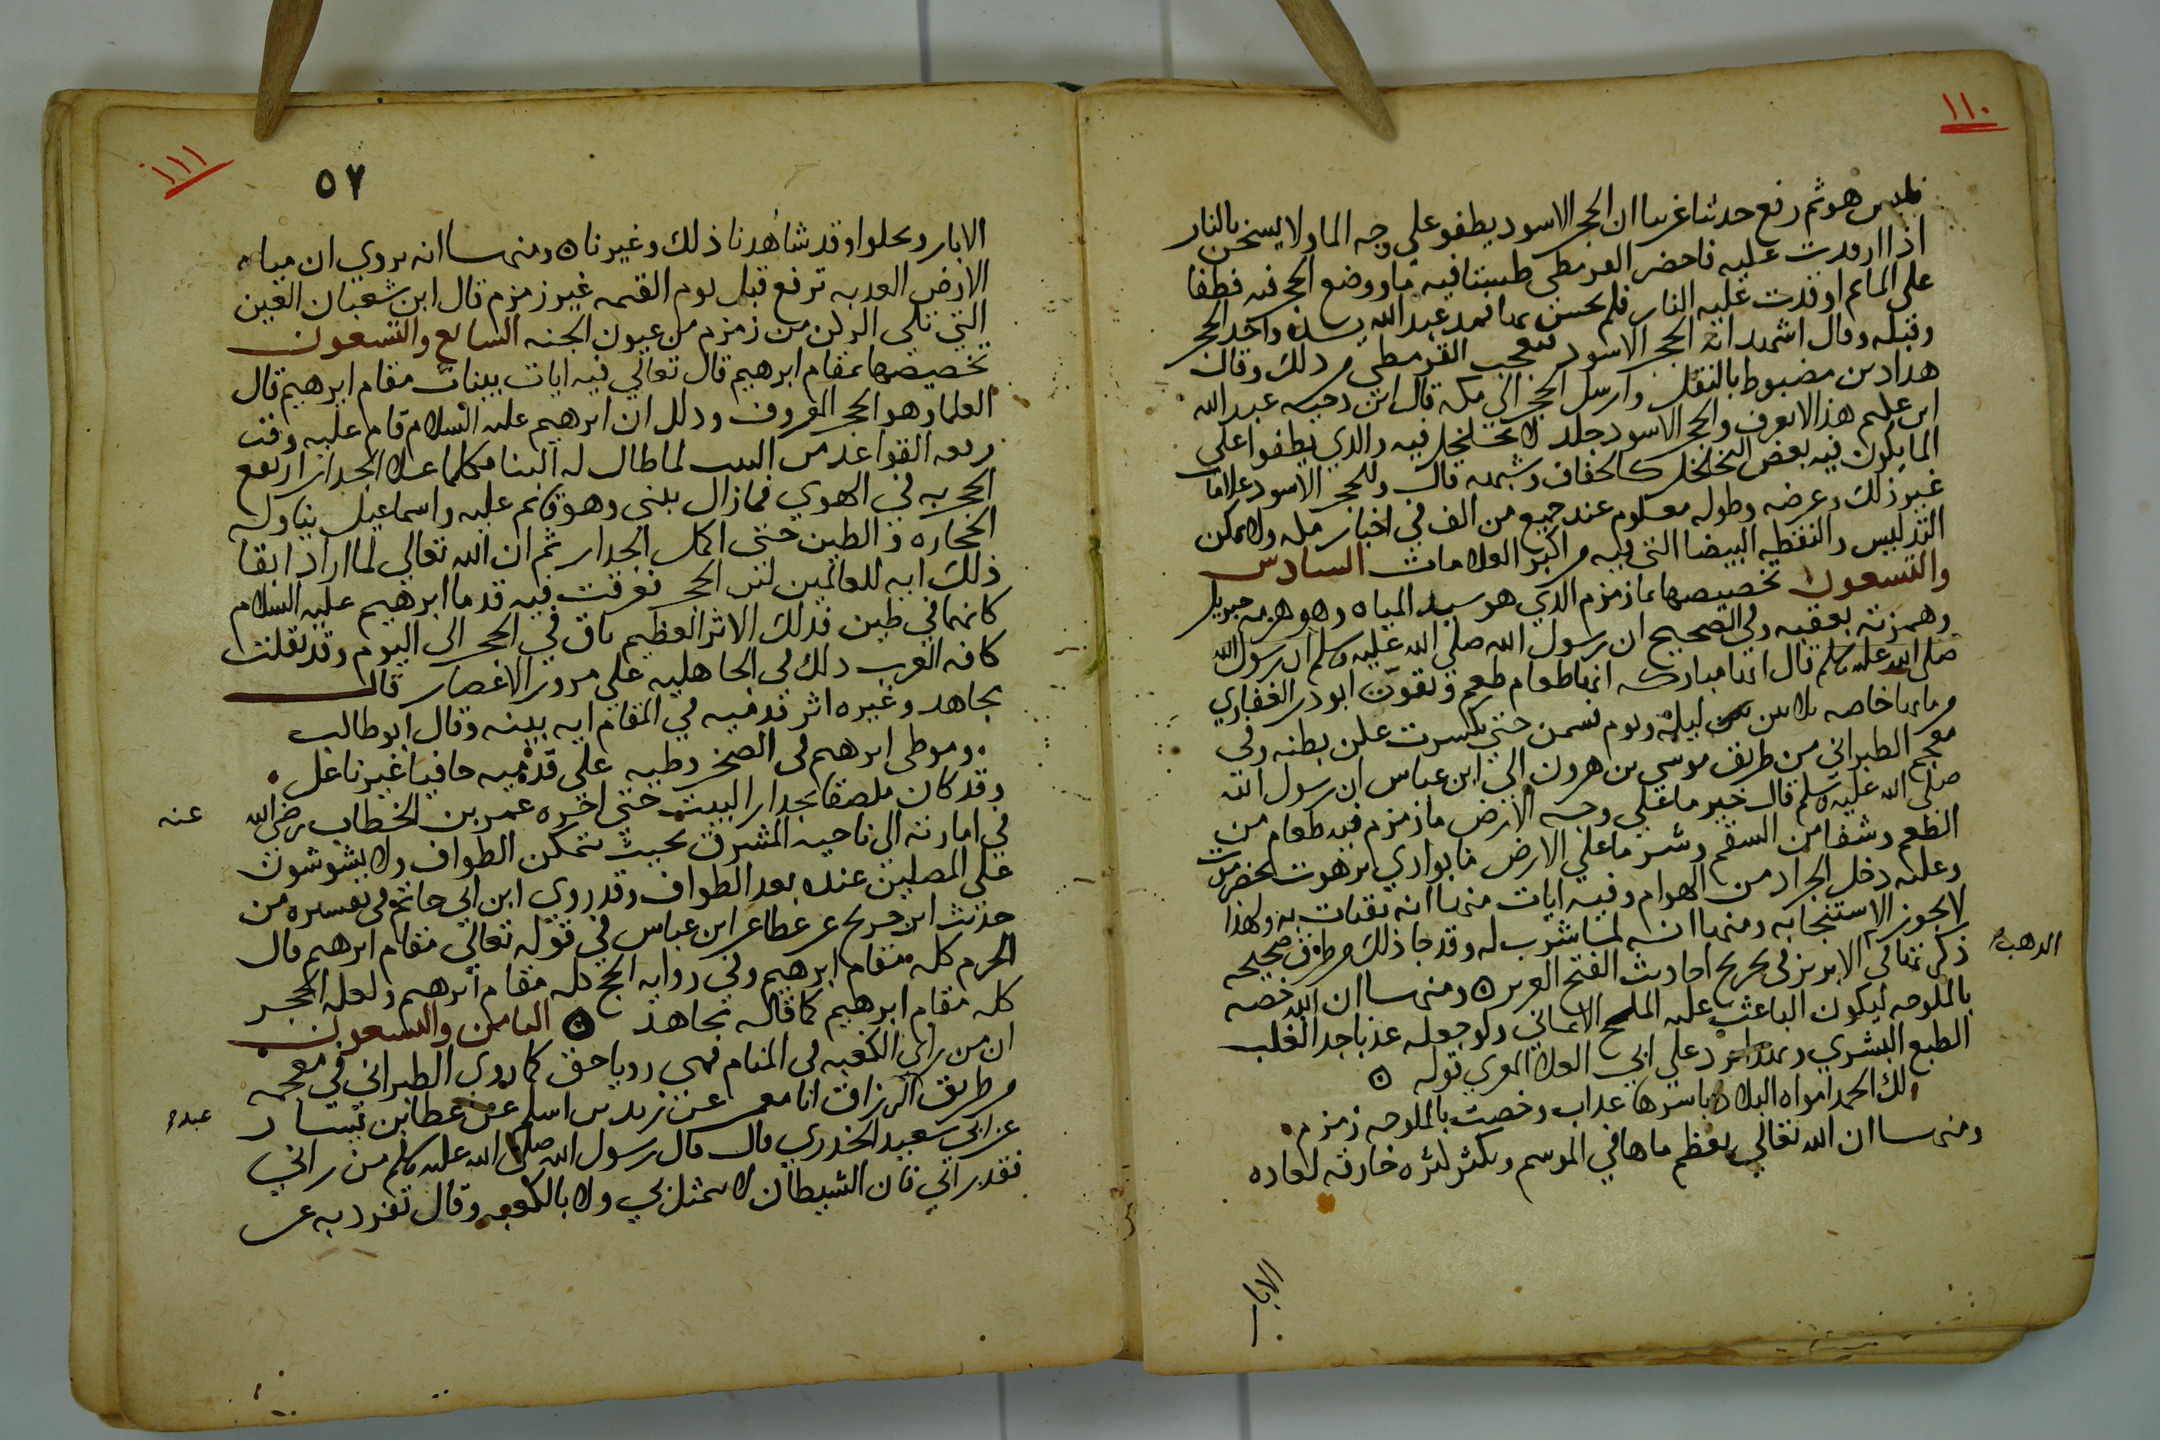 ١١٠
فلبس هو ثم رفع حدثنا غريبا ان الحجر الاسود يطفو على وجه الما ولا يسخن بالنار
اذا اوقدت عليه فاحضر القرمطي طستا فيه ما ووضع الحجر فيه فطفا
على الما ثم اوقدت عليه النار فلم يحس بها فمد عبد الله يده واخذ الحجر
وقبله وقال اشهد انه الحجر الاسود فتعجب القرمطي من ذلك وقال
هذا دين مضبوط بالنقل وارسل الحجر الى مكة قال ابن دحية عبد الله
ابن عليم هذا لا يعرف والحجر الاسود جلد لا تخلخل فيه والذي يطفوا على
الما يكون فيه بعض التخلخل كالخفاف وشبهه قال وللحجر الاسود علامات
غير ذلك وعرضه وطوله معلوم عند جميع من الف في اخبار مكة ولا يمكن
التدليس والنقطه البيضا التي فيه من اكبر العلامات السادس
والتسعون تخصيصها بما زمزم الذي هو سيد المياه وهو هزمه جبريل
وهمزته بعقبه وفي الصحيح ان رسول الله صلى الله عليه وسلم ان رسول الله
صلى الله عليه وسلم قال انها مباركه انها طعام طعم وتقوت ابو ذر الغفاري
من مايها خاصه ثلاثين ليلة ويوم فسمن حتى تكسرت عكن بطنه وفي
معجم الطبراني من طريق موسى بن هرون الى ابن عباس ان رسول الله
صلى الله عليه وسلم قال خير ما على وجه الارض ما زمزم فيه طعام من
الطعم وشفا من السقم وشر ما على الارض ما بوادي برهوت بحضرموت
وعليه دخل الجراد من الهوام وفيه ايات منها انه يقتات به ولهذا
لا يجوز الاستنجا به ومنها انه لما شرب له وقد جا ذلك من طرق صحيحه
ذكرتها في الابريز في تخريج احاديث الفتح العزيز ٥ ومنها ان الله خصه
الذهب
بالملوحه ليكون الباعث عليه الملمح الايماني ولو جعله عذبا جدا لغلب
الطبع البشري وبهذا يرد على ابي العلا المعري قوله ٥
لك الحمد امواه البلاد باسرها عذاب وخصت بالملوحه زمزم
ومنها ان الله تعالى يعظم ماها في الموسم ويكثر كثره خارقه لعاده
الابار
١١١
٥٧
الابار ويحلوا وقد شاهدنا ذلك وغيرنا ٥ ومنها انه يروي ان مياه
الارض العذبه ترفع قبل يوم القيمه غير زمزم قال ابن شعبان العين
التي تلى الركن من زمزم من عيون الجنه السابع والتسعون
تخصيصها بمقام ابرهيم قال تعالى فيه ايات بينات مقام ابرهيم قال
العلما وهو الحجر المعروف وذلك ان ابرهيم عليه السلام قام عليه وقت
رفعه القواعد من البيت لما طال له البنا فكلما علا الجدار ارتفع
الحجر به في الهوي فما زال يبني وهو قايم عليه واسماعيل يناوله
الحجاره والطين حتى اكمل الجدار ثم ان الله تعالى لما اراد ابقا
ذلك ايه للعالمين لين الحجر فغرقت فيه قدما ابرهيم عليه السلام
كانهما في طين فذلك الاثر العظيم باق في الحجر الى اليوم وقد نقلت
كافه العرب ذلك في الجاهليه على مرور الاعصار قال
مجاهد وغيره اثر قدميه في المقام ايه بينه وقال ابو طالب
وموطى ابرهيم في الصخر وطيه على قدميه حافيا غير ناعل
وقد كان ملصقا بجدار البيت حتى اخره عمر بن الخطاب رضى الله
عنه
في امارته الى ناحيه المشرق بحيث يتمكن الطواف ولا يشوشون
على المصلين عنده بعد الطواف وقد روى ابن ابي حاتم في تفسيره من
حديث ابن جريج عن عطا عن ابن عباس في قوله تعالى مقام ابرهيم قال
الحرم كله مقام ابرهيم وفي روايه الحج كله مقام ابرهيم ولعله الحجر
كله مقام ابرهيم كما قاله مجاهد ٥ الثامن والتسعون
ان من راى الكعبه في المنام فهي رويا حق كما روى الطبراني في معجمه
من طريق الرزاق انا معمر عن زيد بن اسلم عن عطا بن يسار
عبد
عن ابي سعيد الخدري قال قال رسول الله صلى الله عليه وسلم من راني
فقد راني فان الشيطان لا يتمثل بي ولا بالكعبه وقال تفرد به عن